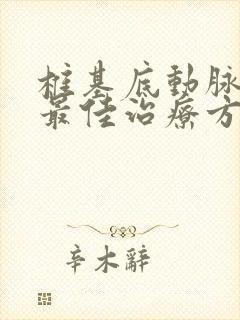 椎基底動脉
最佳治療方
辛木辭